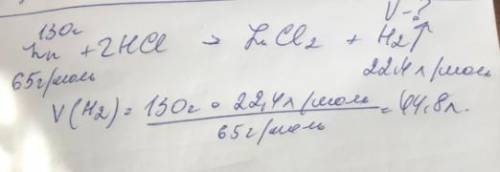 130г V-?
Zn + 2HCl → ZnCl2 + H2↑
65г/моль 22,4л/моль
V(H2) = 130г · 22,4л/моль / 65г/моль = 44,8л.